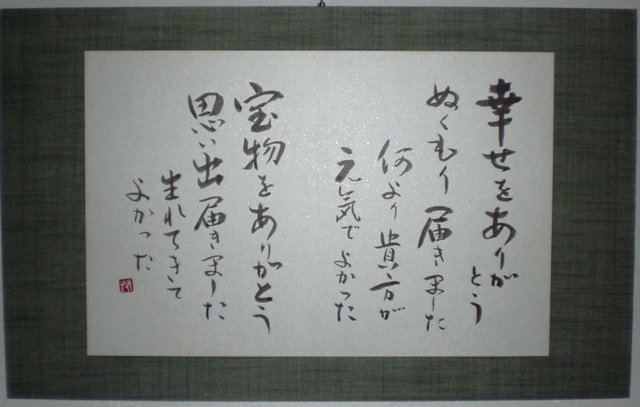 幸せをありがとう
ぬくもり届きました
何より貴方が
元気でよかった
宝物をありがとう
思い出届きました
生れてきて
よかった